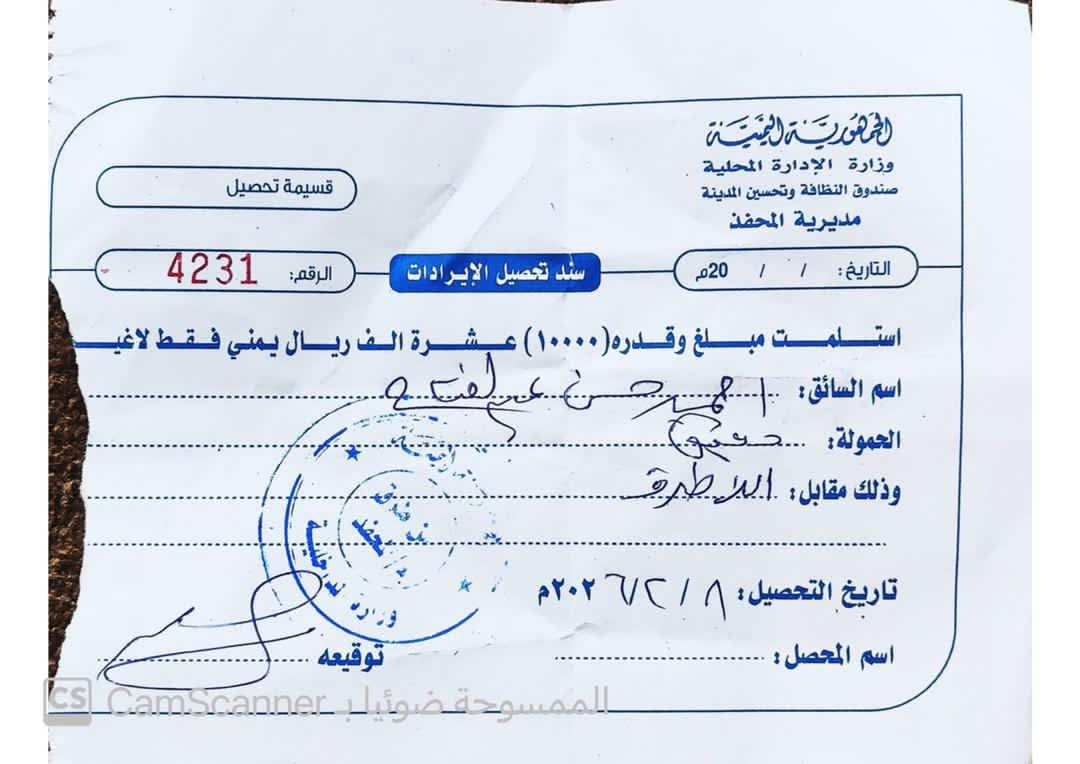 الجمهورية اليمنية
وزارة الإدارة المحلية
صندوق النظافة وتحسين المدينة
مديرية المحفد
قسيمة تحصيل
التاريخ: / / 20م
سند تحصيل الإيرادات
الرقم: 4231
استلمت مبلغ وقدره (١٠٠٠٠) عشرة الف ريال يمني فقط لاغيـ
اسم السائق: احمد حسن عبدالفتاح
الحمولة: دقيق
وذلك مقابل:
تاريخ التحصيل: ٨ / ٢ / ٢٠٢٦م
اسم المحصل:
توقيعه
وزارة الداخلية
المحفد
CS CamScanner الممسوحة ضوئيا بـ